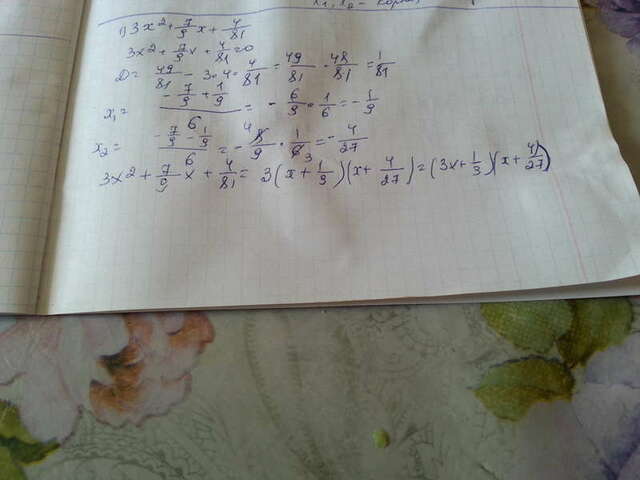 x₁, x₂ –
1) 3x² + 7/9 x + 4/81
3x² + 7/9 x + 4/81 = 0
D = 49/81 - 3·4· 4/81 = 49/81 - 48/81 = 1/81
x₁ = (-7/9 + 1/9)/6 = - 6/9 · 1/6 = - 1/9
x₂ = (-7/9 - 1/9)/6 = - 4 8/9 · 1/6 3 = - 4/27
3x² + 7/9 x + 4/81 = 3(x + 1/9)(x + 4/27) = (3x + 1/3)(x + 4/27)